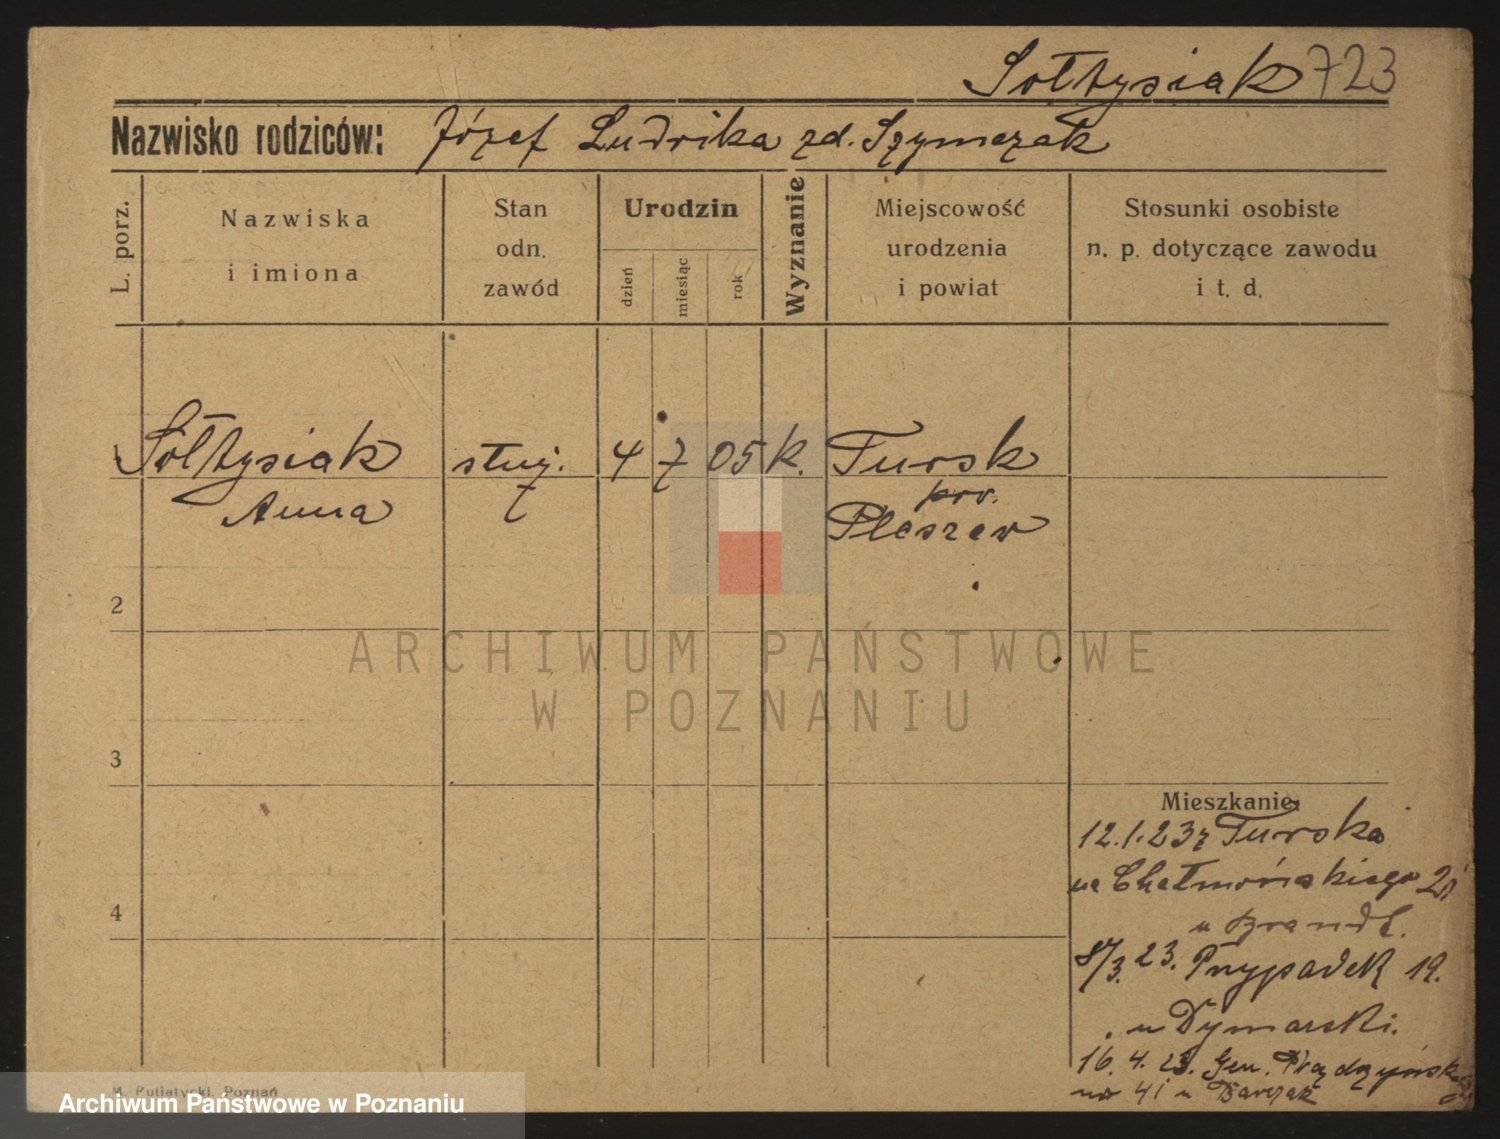 Sołtysiak 723
Nazwisko rodziców: Józef Ludwika zd. Szymczak
L. porz.
Nazwiska
i imiona
Stan
odn.
zawód
Urodzin
dzień
miesiąc
rok
Wyznanie
Miejscowość
urodzenia
i powiat
Stosunki osobiste
n. p. dotyczące zawodu
i t. d.
1 Sołtysiak służ. 4 7 05 k. Tursk
Anna pow.
Pleszew
2
3
4
ARCHIWUM PAŃSTWOWE
W POZNANIU
Mieszkanie:
12.1.23 z Turska
na Chełmońskiego
u Brandt.
8/3.23. Przypadek 19.
u Dymarski.
16.4.23. Gen. Prądzyńsk
no 41 u
M. Putiatycki, Poznań
Archiwum Państwowe w Poznaniu